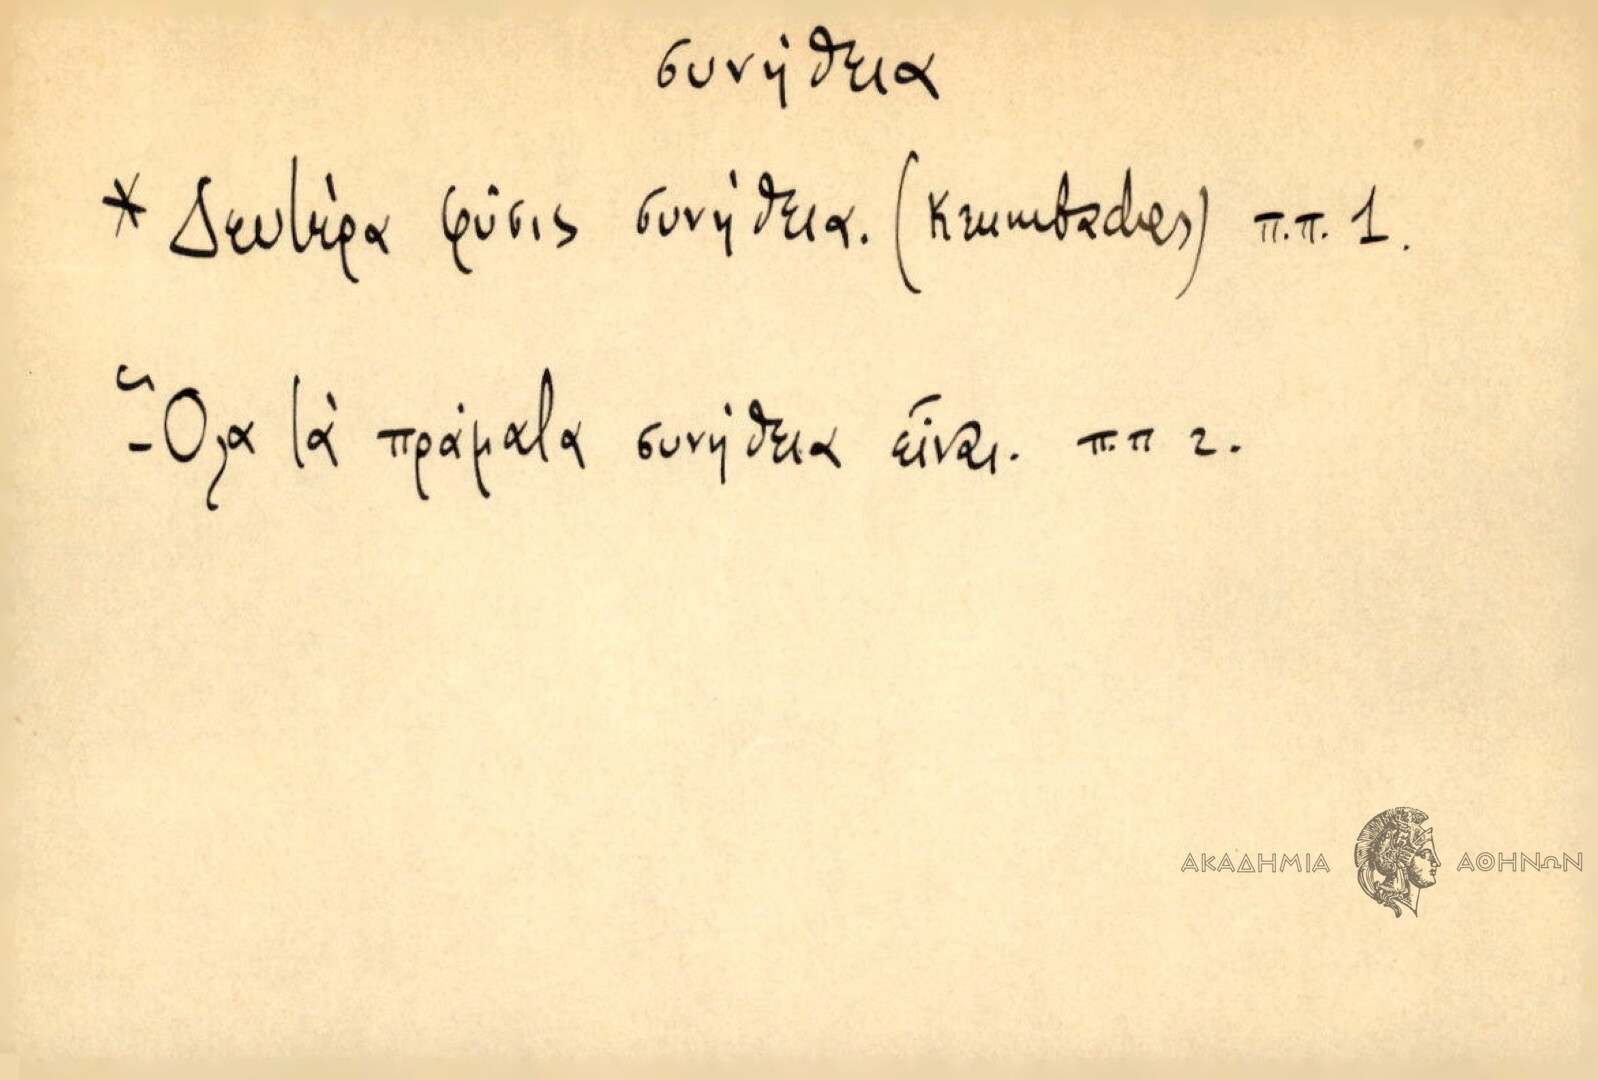 συνήθεια
* Δευτέρα φύσις συνήθεια. (Krumbacher) π.π. 1.
- Ὅλα τὰ πράματα συνήθεια εἶναι. π.π 2.
ΑΚΑΔΗΜΙΑ ΑΘΗΝΩΝ